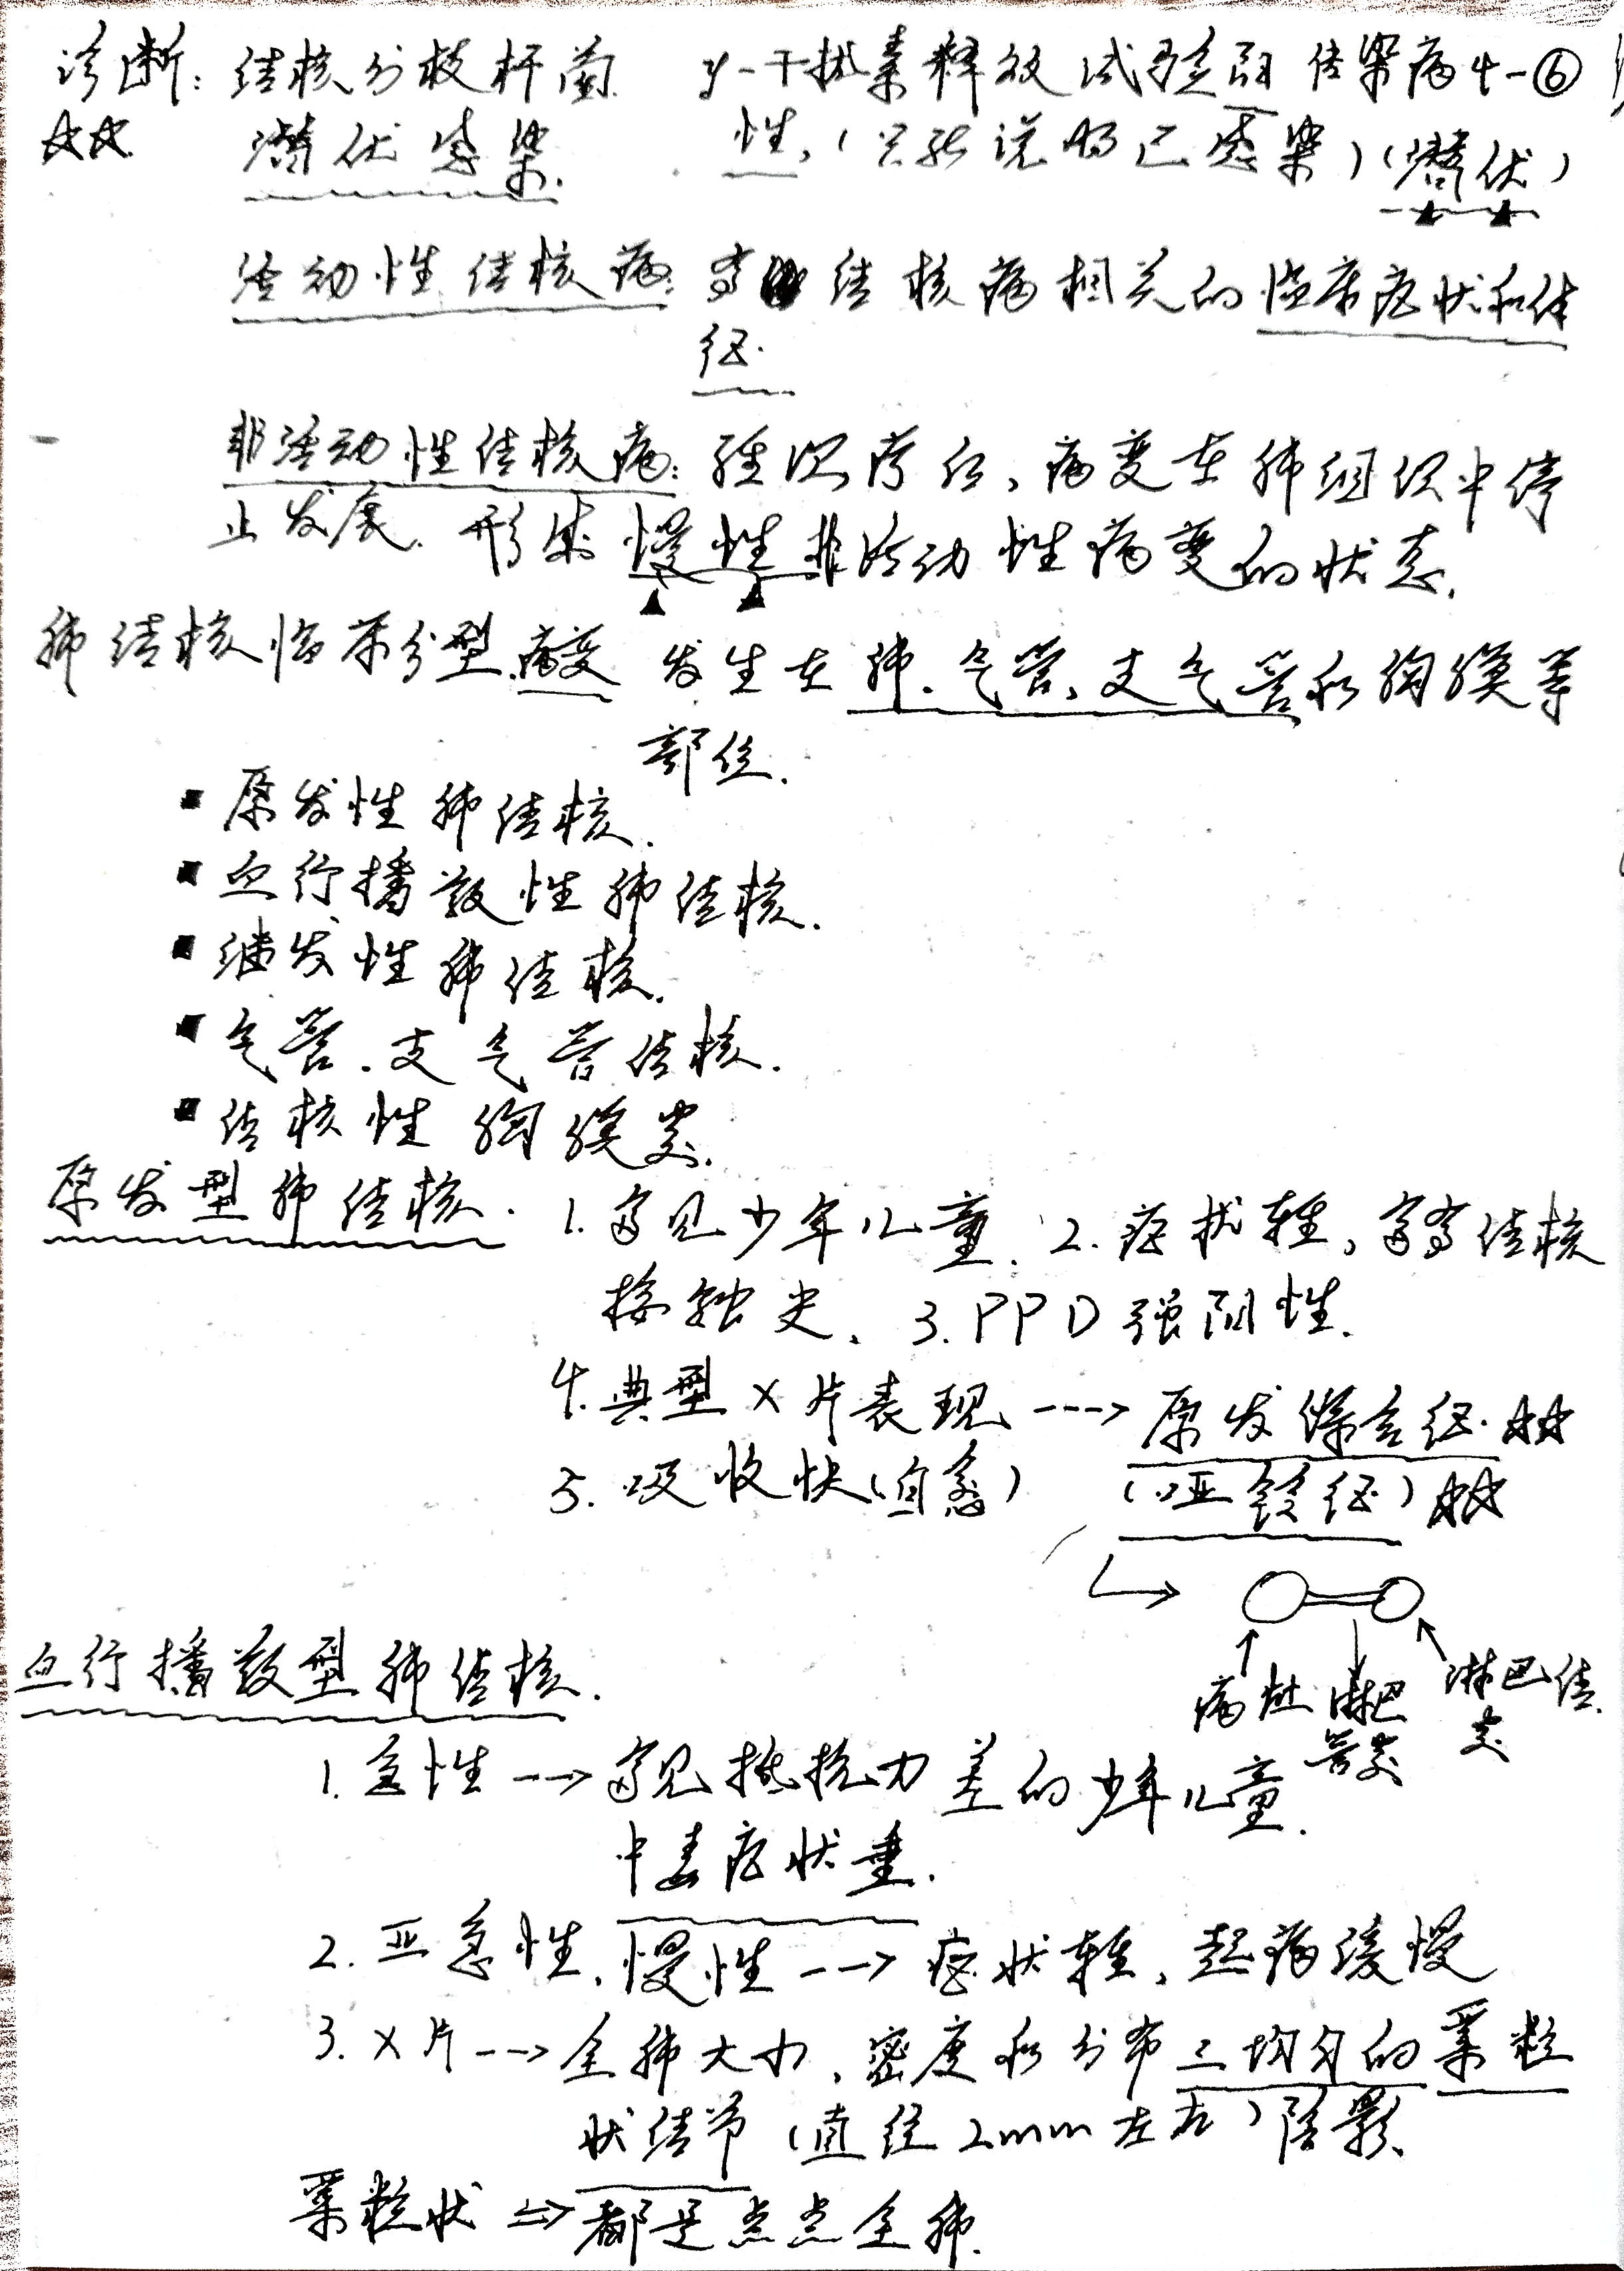 诊断: 结核分枝杆菌 γ-干扰素释放试验阳 传染病4-⑥
☆☆ 潜伏感染. 性,(只能说明已感染)(潜伏)
活动性结核病: 有结核病相关的临床症状和体
征.
非活动性结核病: 经治疗后、病变在肺组织中停
止发展. 形成慢性非活动性病变的状态.
肺结核临床分型.病变 发生在肺.气管、支气管和胸膜等
部位.
▪ 原发性肺结核.
▪ 血行播散性肺结核.
▪ 继发性肺结核.
▪ 气管.支气管结核.
▪ 结核性胸膜炎.
原发型肺结核. 1.多见少年儿童. 2.症状轻、多有结核
接触史、3.PPD强阳性.
4.典型X片表现 ---> 原发综合征.☆☆
5.吸收快(自愈) (哑铃征)☆☆
病灶 淋巴管炎 淋巴结炎
血行播散型肺结核.
1.急性 --> 多见抵抗力差的少年儿童.
中毒症状重.
2.亚急性、慢性 --> 症状轻、起病缓慢
3.X片 --> 全肺大小、密度和分布三均匀的粟粒
状结节(直径2mm左右)阴影、
粟粒状 => 都是点点全肺.